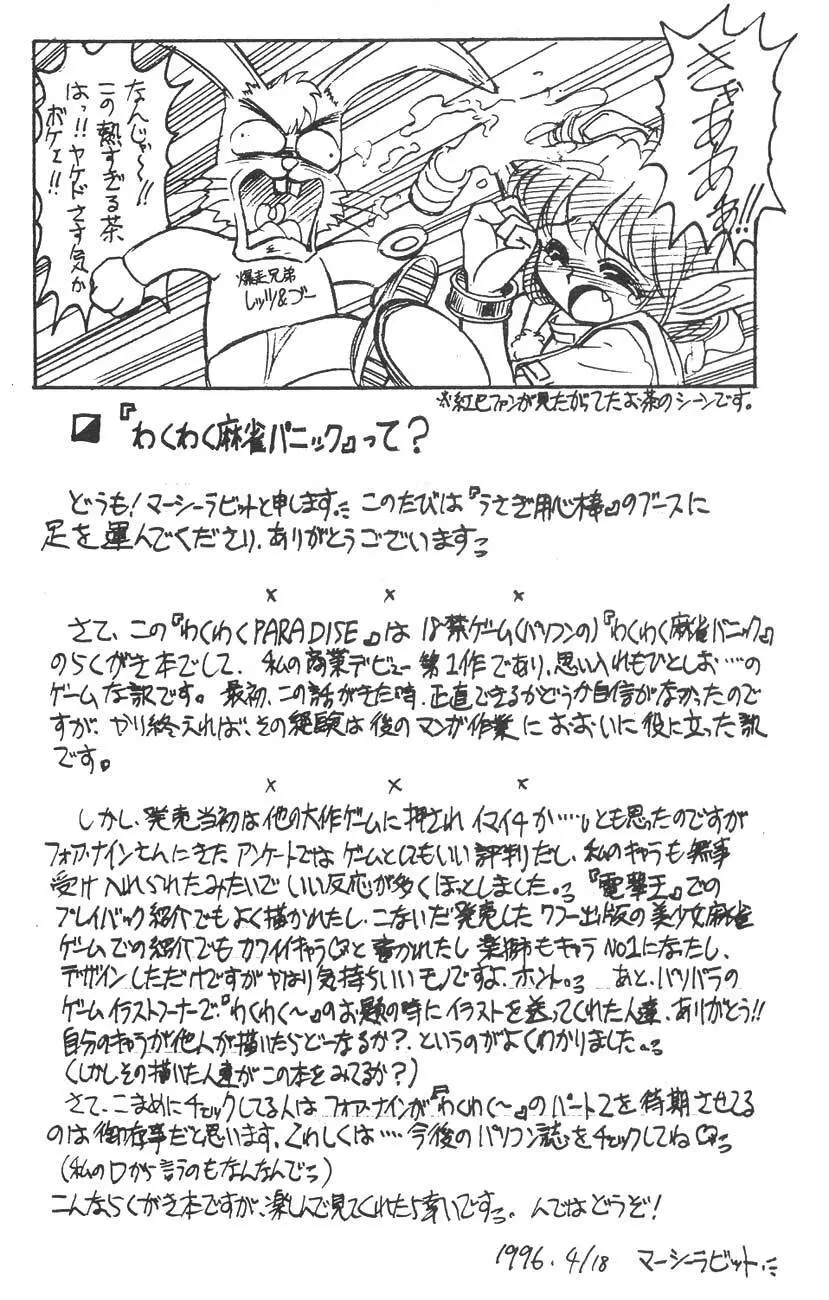 きゃあああぁ!!
なんじゃ〜!!
この熱すぎる茶
はっ!!ヤケドさす気か
ボケェ!!
爆走兄弟
レッツ&ゴー
※紅己ファンが見たがってたお茶のシーンです。
『わくわく麻雀パニック』って?
どうも!マーシーラビットと申します。このたびは『うさぎ用心棒』のブースに
足を運んでくださり、ありがとうございますっ
× × ×
さて、この『わくわくPARADISE』は18禁ゲーム(パソコンの)『わくわく麻雀パニック』
のらくがき本でして、私の商業デビュー第1作であり、思い入れもひとしお……の
ゲームな訳です。最初、この話がきた時、正直できるかどうか自信がなかったので
すが、やり終えれば、その経験は後のマンガ作業におおいに役に立った訳
です。
× × ×
しかし、発売当初は他の大作ゲームに押されイマイチか……とも思ったのですが
フォア・ナインさんにきたアンケートではゲームとしてもいい評判だし、私のキャラも無事
受け入れられたみたいでいい反応が多くほっとしました。っ『電撃王』での
プレイバック紹介でもよく描かれたし、こないだ発売したワニー出版の美少女麻雀
ゲームでの紹介でもカワイイキャラ♡と書かれたし 薬師もキャラNO1になったし、
デザインしただけですがやはり気持ちいいモノですよ、ホント。っ あと、パソパラの
ゲームイラストコーナーで『わくわく〜』のお題の時にイラストを送ってくれた人達、ありがとう!!
自分のキャラが他人が描いたらどーなるか?、というのがよくわかりました。っ
(しかしその描いた人達がこの本をみてるか?)
さて、こまめにチェックしてる人はフォア・ナインが『わくわく〜』のパート2を待期させてる
のは御存事だと思います。くわしくは……今後のパソコン誌をチェックしてね♡っ
(私の口から言うのもなんなんでっ)
こんならくがき本ですが、楽しんで見てくれたら幸いですっ。んではどうぞ!
1996. 4/18 マーシーラビット